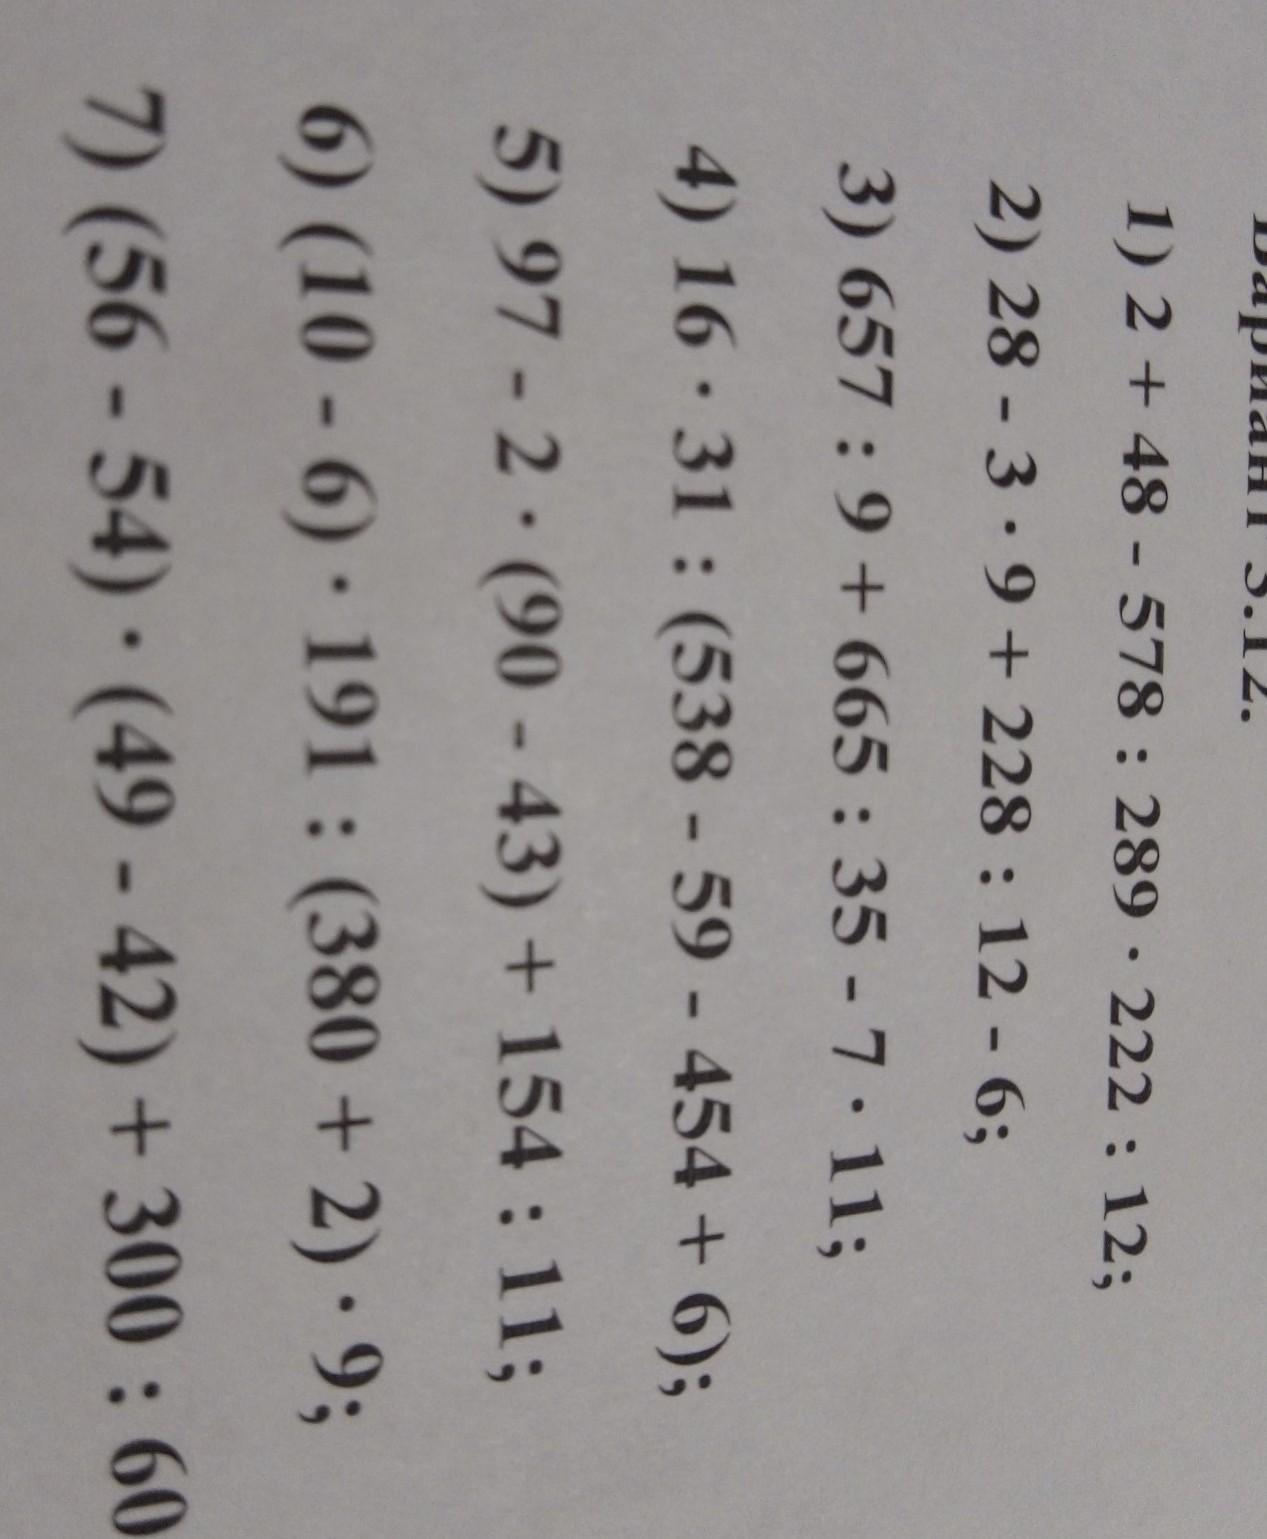 Вариант 3.12.
1) 2 + 48 - 578 : 289 · 222 : 12;
2) 28 - 3 · 9 + 228 : 12 - 6;
3) 657 : 9 + 665 : 35 - 7 · 11;
4) 16 · 31 : (538 - 59 - 454 + 6);
5) 97 - 2 · (90 - 43) + 154 : 11;
6) (10 - 6) · 191 : (380 + 2) · 9;
7) (56 - 54) · (49 - 42) + 300 : 60